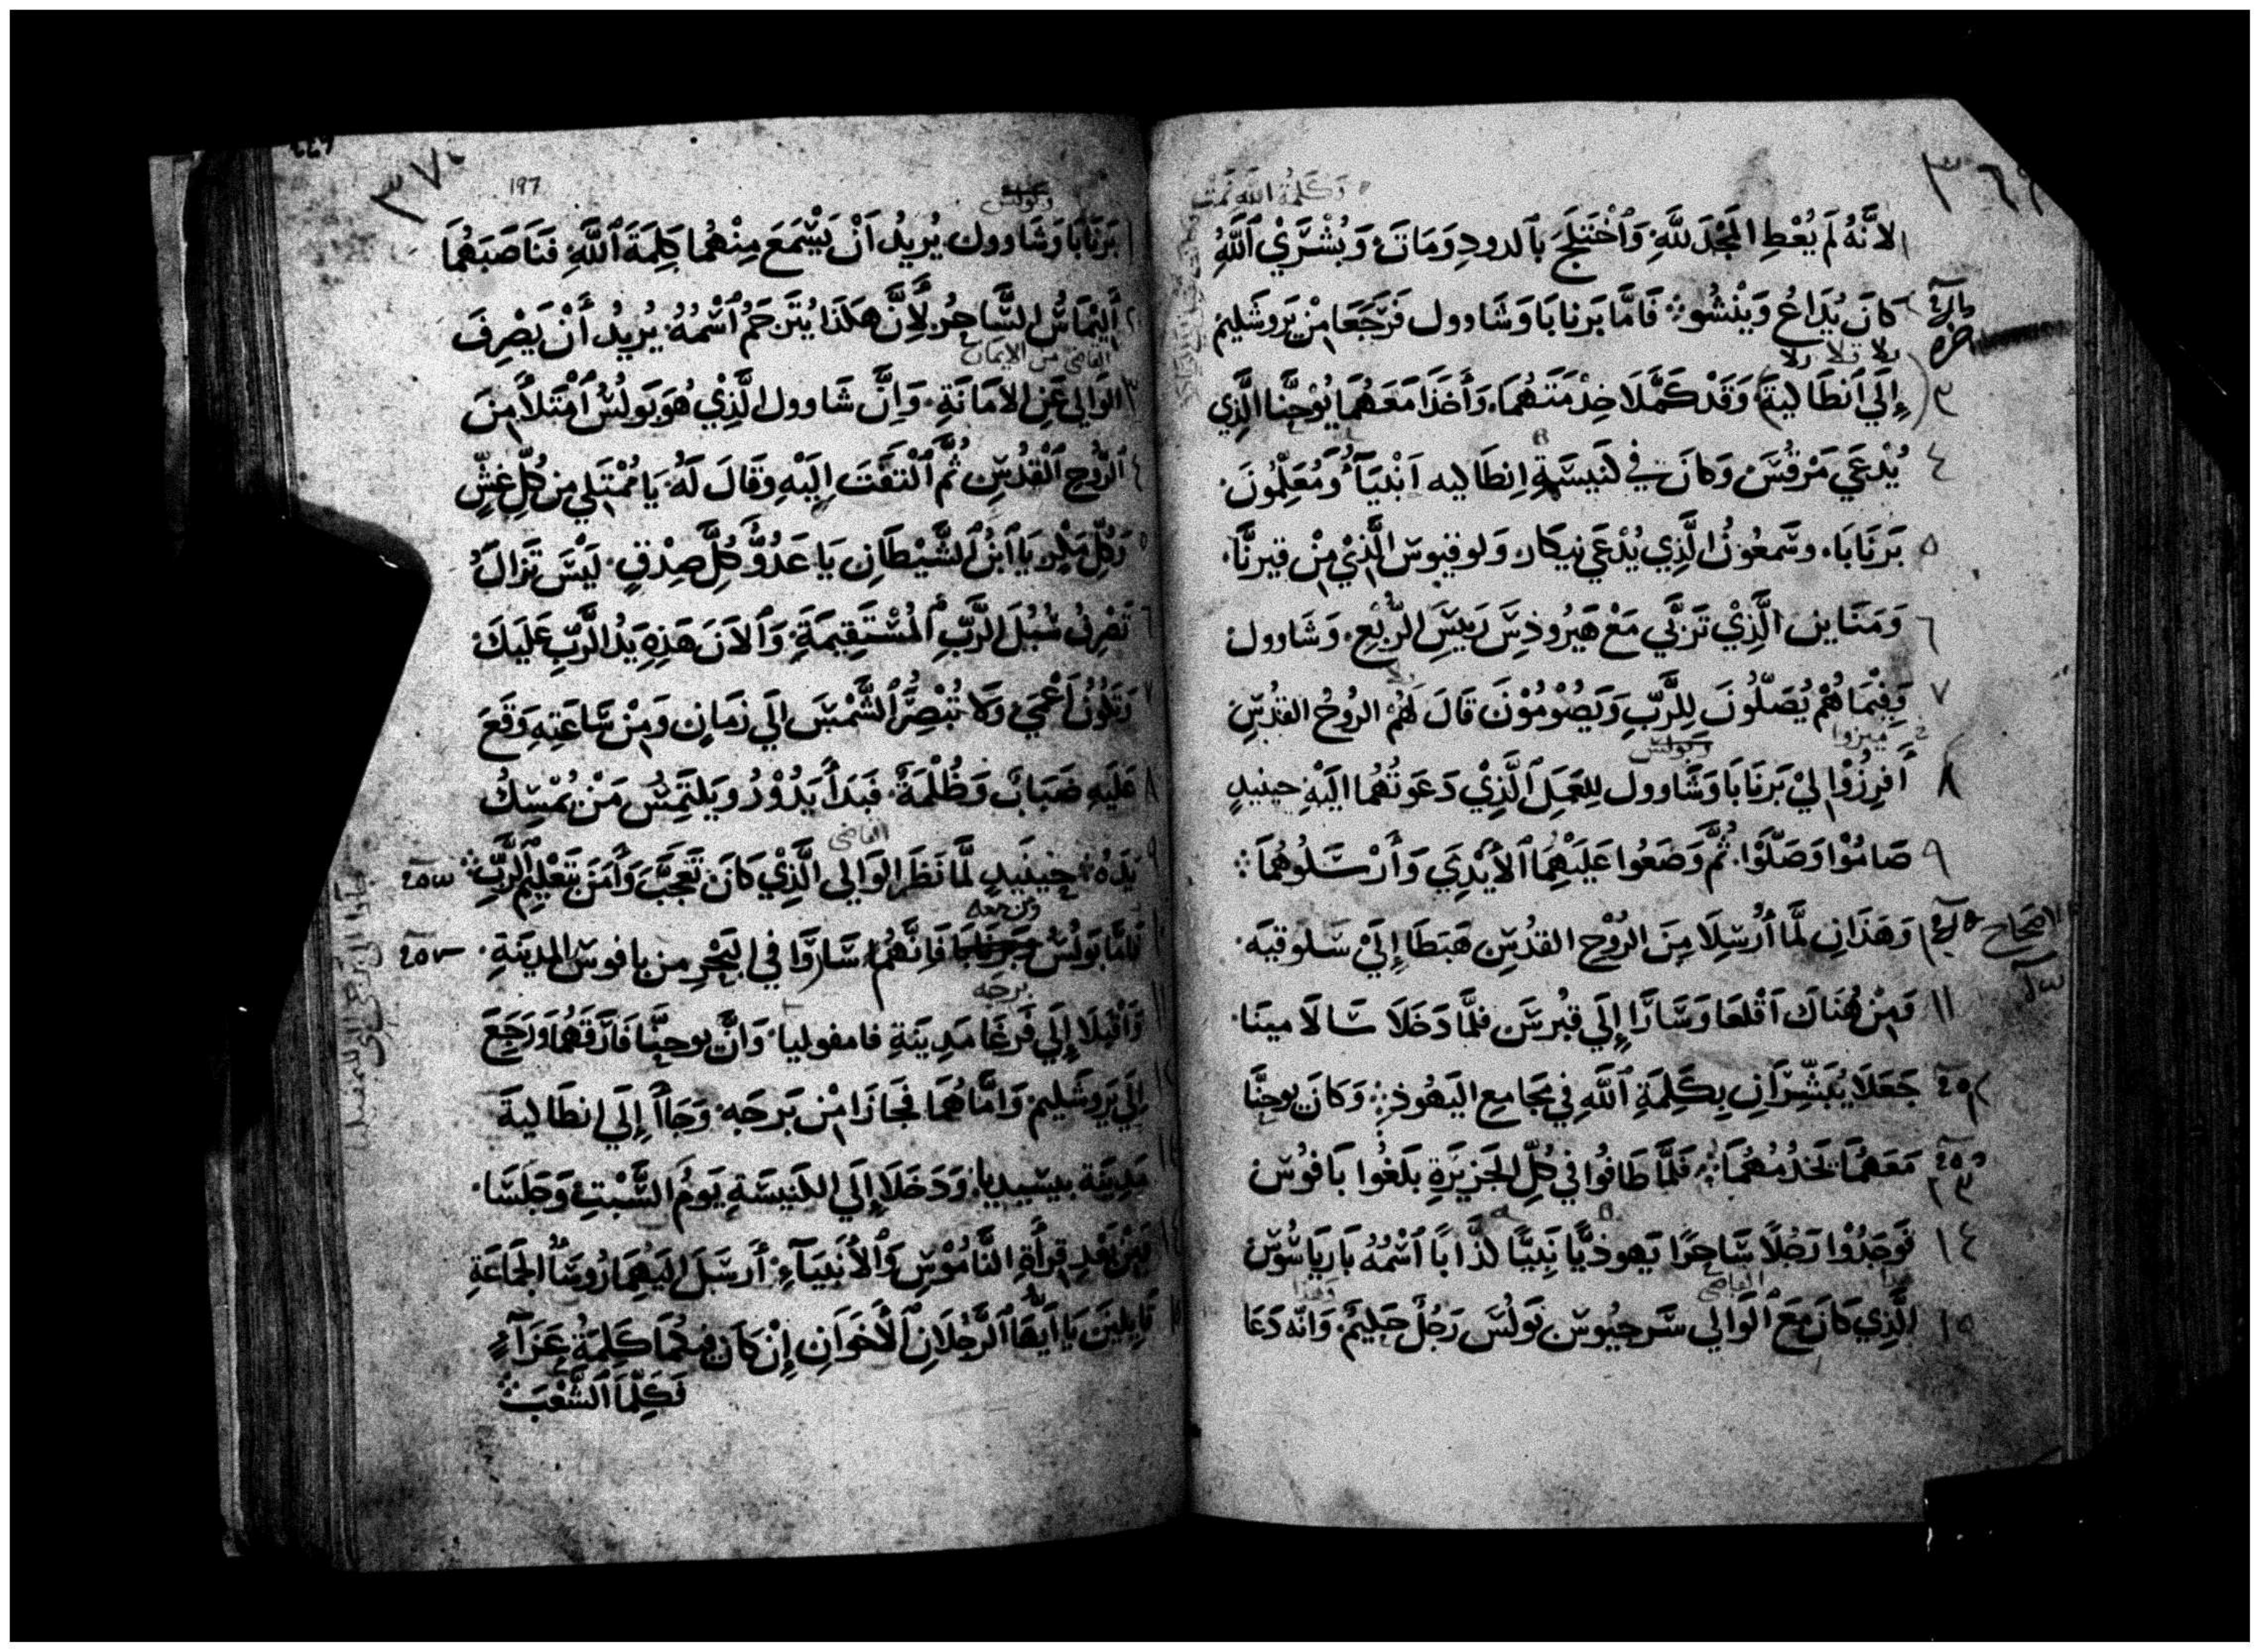 ٣٦٩
وكلمة الله نمت
١ لانَّهُ لَم يُعْطِ المَجْدَ للَّهِ وَاخْتَلَجَ بالدودِ وَمَاتَ وَبُشْرَيْ اللَّهِ
كانَ يُذَاعُ وَيَنْشُو فَامَّا بَرنابَا وَشَاوول فَرَجَعَا مِنْ يَروشَليمَ
٣ إِلَي اَنطَاليةَ وَقَدْ كَمَّلَا خِدْمَتَهُمَا وَأَخَذَا مَعَهُمَا يُوْحَنَّا الَّذِي
٤ يُدْعَي مَرْقُسَ وَكانَ في كَنيسَةِ اِنطَاليه اَنْبيَآءُ وَمُعَلِّمُونَ
٥ بَرنَابَا وشَمعُونُ الَّذِي يُدْعَي نيكار وَلوقيوس الَّذيْ مِنْ قيرنَّا
٦ وَمَنَاين الَّذِيْ تَرَبَّي مَعْ هَيرُوذسَ رَييسَ الرُّبْعِ وَشَاوول
٧ وَفِيْمَا هُمْ يُصَلُّونَ لِلرَّبِّ وَيَصُوْمُوْنَ قَالَ لَهُمْ الرُوحُ القدُسِ
ميزوا
وبولس
٨ أَفرِزُوْا ليْ بَرنَابَا وَشَاوول لِلعَمَلِ الَّذِيْ دَعَوتُهُمَا اليَهِ حينيدٍ
٩ صَامُوْا وَصَلَّوْا ثُمَّ وَضَعُوا عَلَيْهِمَا الاَيْدِيَ وَأَرْسَلُوهُمَا
اصحاح وَهَذَانِ لمَّا أُرسِلَا مِنَ الرُوْحِ القدُسِ هَبَطَا إِلَيْ سَلوقيَه
١١ وَمِنْ هُنَاكَ اَقْلعَا وَسَارَا إِلَي قبُرسَ فلمَّا دَخَلَا سَالاَمينَا
جَعَلَا يُبَشِّرَانِ بِكَلِمَةِ اللَّهِ في مَجَامع اليَهُوذ وَكانَ يوحنَّا
مَعَهُمَا يَخدُمُهُمَا فَلَمَّا طَافُوا في كُلِّ الجَزيرَةِ بَلَغُوا بَافُوسْ
١٤ فَوَجَدُوْا رَجُلًا سَاحِرًا يَهوذيًّا نَبِيًّا كذَّابًا اَسْمُهُ بَاريَاشُوسْ
القاضي
١٥ الَّذِي كانَ مَعَ الوَالي سَرجيُوس بَولُسَ رَجُلٌ حَليمٌ وَانَّه دَعَا
٣٧٠
197
وبولس
١ بَرنَابَا وَشَاوول يُريدُ اَنْ يَسْمَعَ مِنْهُمَا كَلِمَةَ اللَّهِ فنَاصَبَهُمَا
٢ أَليْمَاسُ السَّاحِرُ لأَنَّ هَكَذَا يُتَرجَمُ اسْمُهُ يُريدُ أَنْ يَصْرِفَ
القاضي من الايمان
٣ الوَالي عَنِ الاَمَانَةِ وَاِنَّ شَاوول الَّذِيْ هُوَ بَولُسُ امْتَلأَ مِنَ
٤ الرُّوحِ القُدُسِ ثُمَّ الْتَفَتَ اِلَيْهِ وَقَالَ لَهُ يَا مُمْتَلي مِن كُلِّ غِشٍّ
٥ وَكُلِّ مَكْرٍ يَا اَبنُ الشَّيْطَانِ يَا عَدُوَّ كُلَّ صِدْقٍ لَيْسَ تَزَالُ
٦ تَصْرِفُ سُبُلَ الرَّبِّ المُسْتَقِيمَةِ وَالاَنَ هَذِهِ يَدُ الرَّبِّ عَلَيكَ
٧ وَتكُوْنُ اَعْمَي وَلَا تُبْصِرُ الشَّمْسَ اِلَي زَمَانٍ وَمِنْ سَاعَتِهِ وَقَعَ
٨ عَلَيهِ ضَبَابٌ وَظُلْمَةٌ فَبَدأَ يَدُوْرُ وَيَلتَمِسُ مَنْ يُمْسِكُ
القاضي
٩ يَدَهُ حِينَيدٍ لَمَّا نَظَرَ الوَالي الَّذِيْ كَانَ تَعَجَّبَ وَأَمَنَ بتَعْليمِ الرَّبِّ
ومن معه
فَامَّا بَولُسُ وَبَرنَابَا فَانَّهُمَا سَارَوا في البَحْرِ مِن بافوس المَدينَةِ
برجه
١١ وَاَقْبَلَا إِلَي فَرغَا مَدِينَةِ فامفوليا وَانَّ يوحَنَّا فَارَقَهُمَا وَرَجَعَ
إِلَي يَروشَليم وَامَّا هُمَا فَجَازَا مِنْ بَرجَه وَجَاأَا إِلَي انطَاليةَ
مَدِينَة بيسيديا وَدَخَلَا إِلَي الكنيسَةِ يَومُ السَّبْتِ وَجَلَسَا
١٤ فمِنْ بَعْدِ قرأَةِ النَّامُوْسِ وَالأَنْبيَآءِ أَرسَلَ اليَهِمَا رُوسَاُ الجمَاعَةِ
١٥ قَايلينَ يَا أَيُّهَا الرَّجُلَانِ الأَخَوَانِ إِنْ كَانَ فيكمَا كَلِمَةُ عَزَآءٍ
فَكَلِّمَا الشَّعْبَ